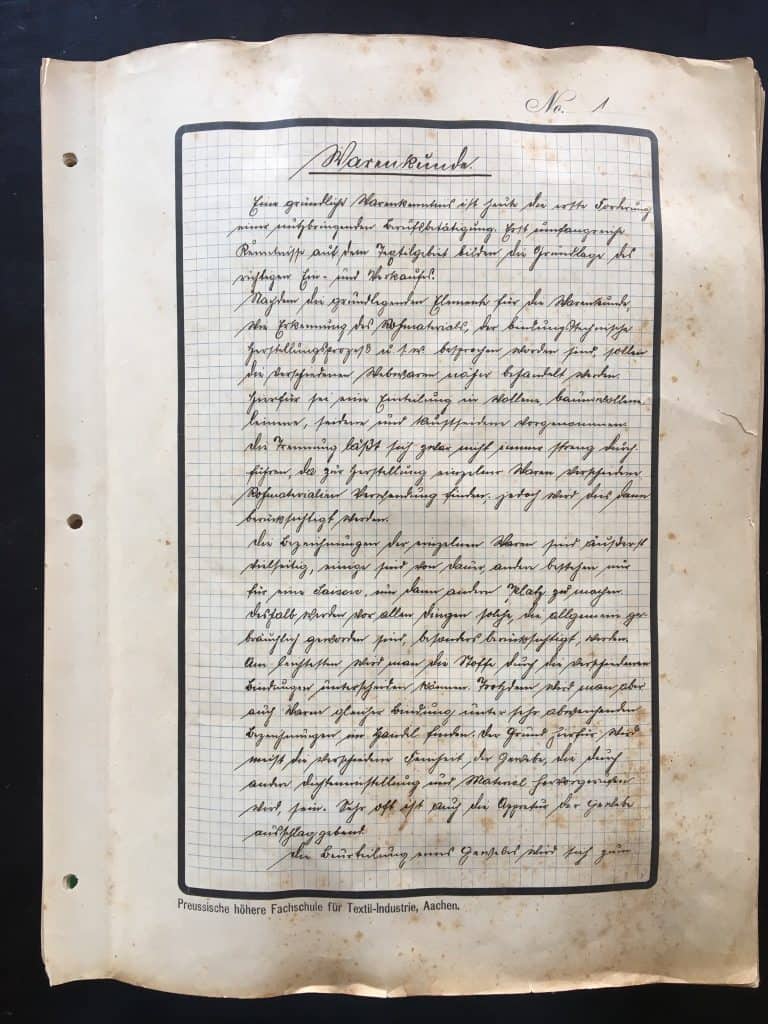 No. 1
Warenkunde.
Eine gründliche Warenkenntnis ist heute die erste Forderung
einer nutzbringenden Berufsbetätigung. Erst umfangreiche
Kenntnisse auf dem Textilgebiet bilden die Grundlage des
richtigen Ein- und Verkaufes.
Nachdem die grundlegenden Elemente für die Warenkunde,
wie Erkennung des Rohmaterials, der bindungstechnische
Herstellungsprozeß u.s.w. besprochen worden sind, sollen
die verschiedenen Webwaren näher behandelt werden.
Hierfür sei eine Einteilung in wollene, baumwollene
leinene, seidene und kunstseidene vorgenommen.
Die Trennung läßt sich zwar nicht immer streng durch-
führen, da zur Herstellung einzelner Waren verschiedene
Rohmaterialien Verwendung finden, jedoch wird dies dann
berücksichtigt werden.
Die Bezeichnungen der einzelnen Waren sind äußerst
vielseitig, einige sind von Dauer, andere bestehen nur
für eine Saison, um dann andern Platz zu machen.
Deshalb werden vor allen Dingen solche, die allgemein ge-
bräuchlich geworden sind, besonders berücksichtigt werden.
Am leichtesten wird man die Stoffe durch die verschiedenen
Bindungen unterscheiden können. Trotzdem wird man aber
auch Waren gleicher Bindung unter sehr abweichenden
Bezeichnungen im Handel finden. Der Grund hierfür wird
meist die verschiedene Feinheit der Gewebe, die durch
andere Dichteneinstellung und Material hervorgerufen
wird, sein. Sehr oft ist auch die Appretur der Gewebe
ausschlaggebend.
Die Beurteilung eines Gewebes wird sich zum
Preussische höhere Fachschule für Textil-Industrie, Aachen.